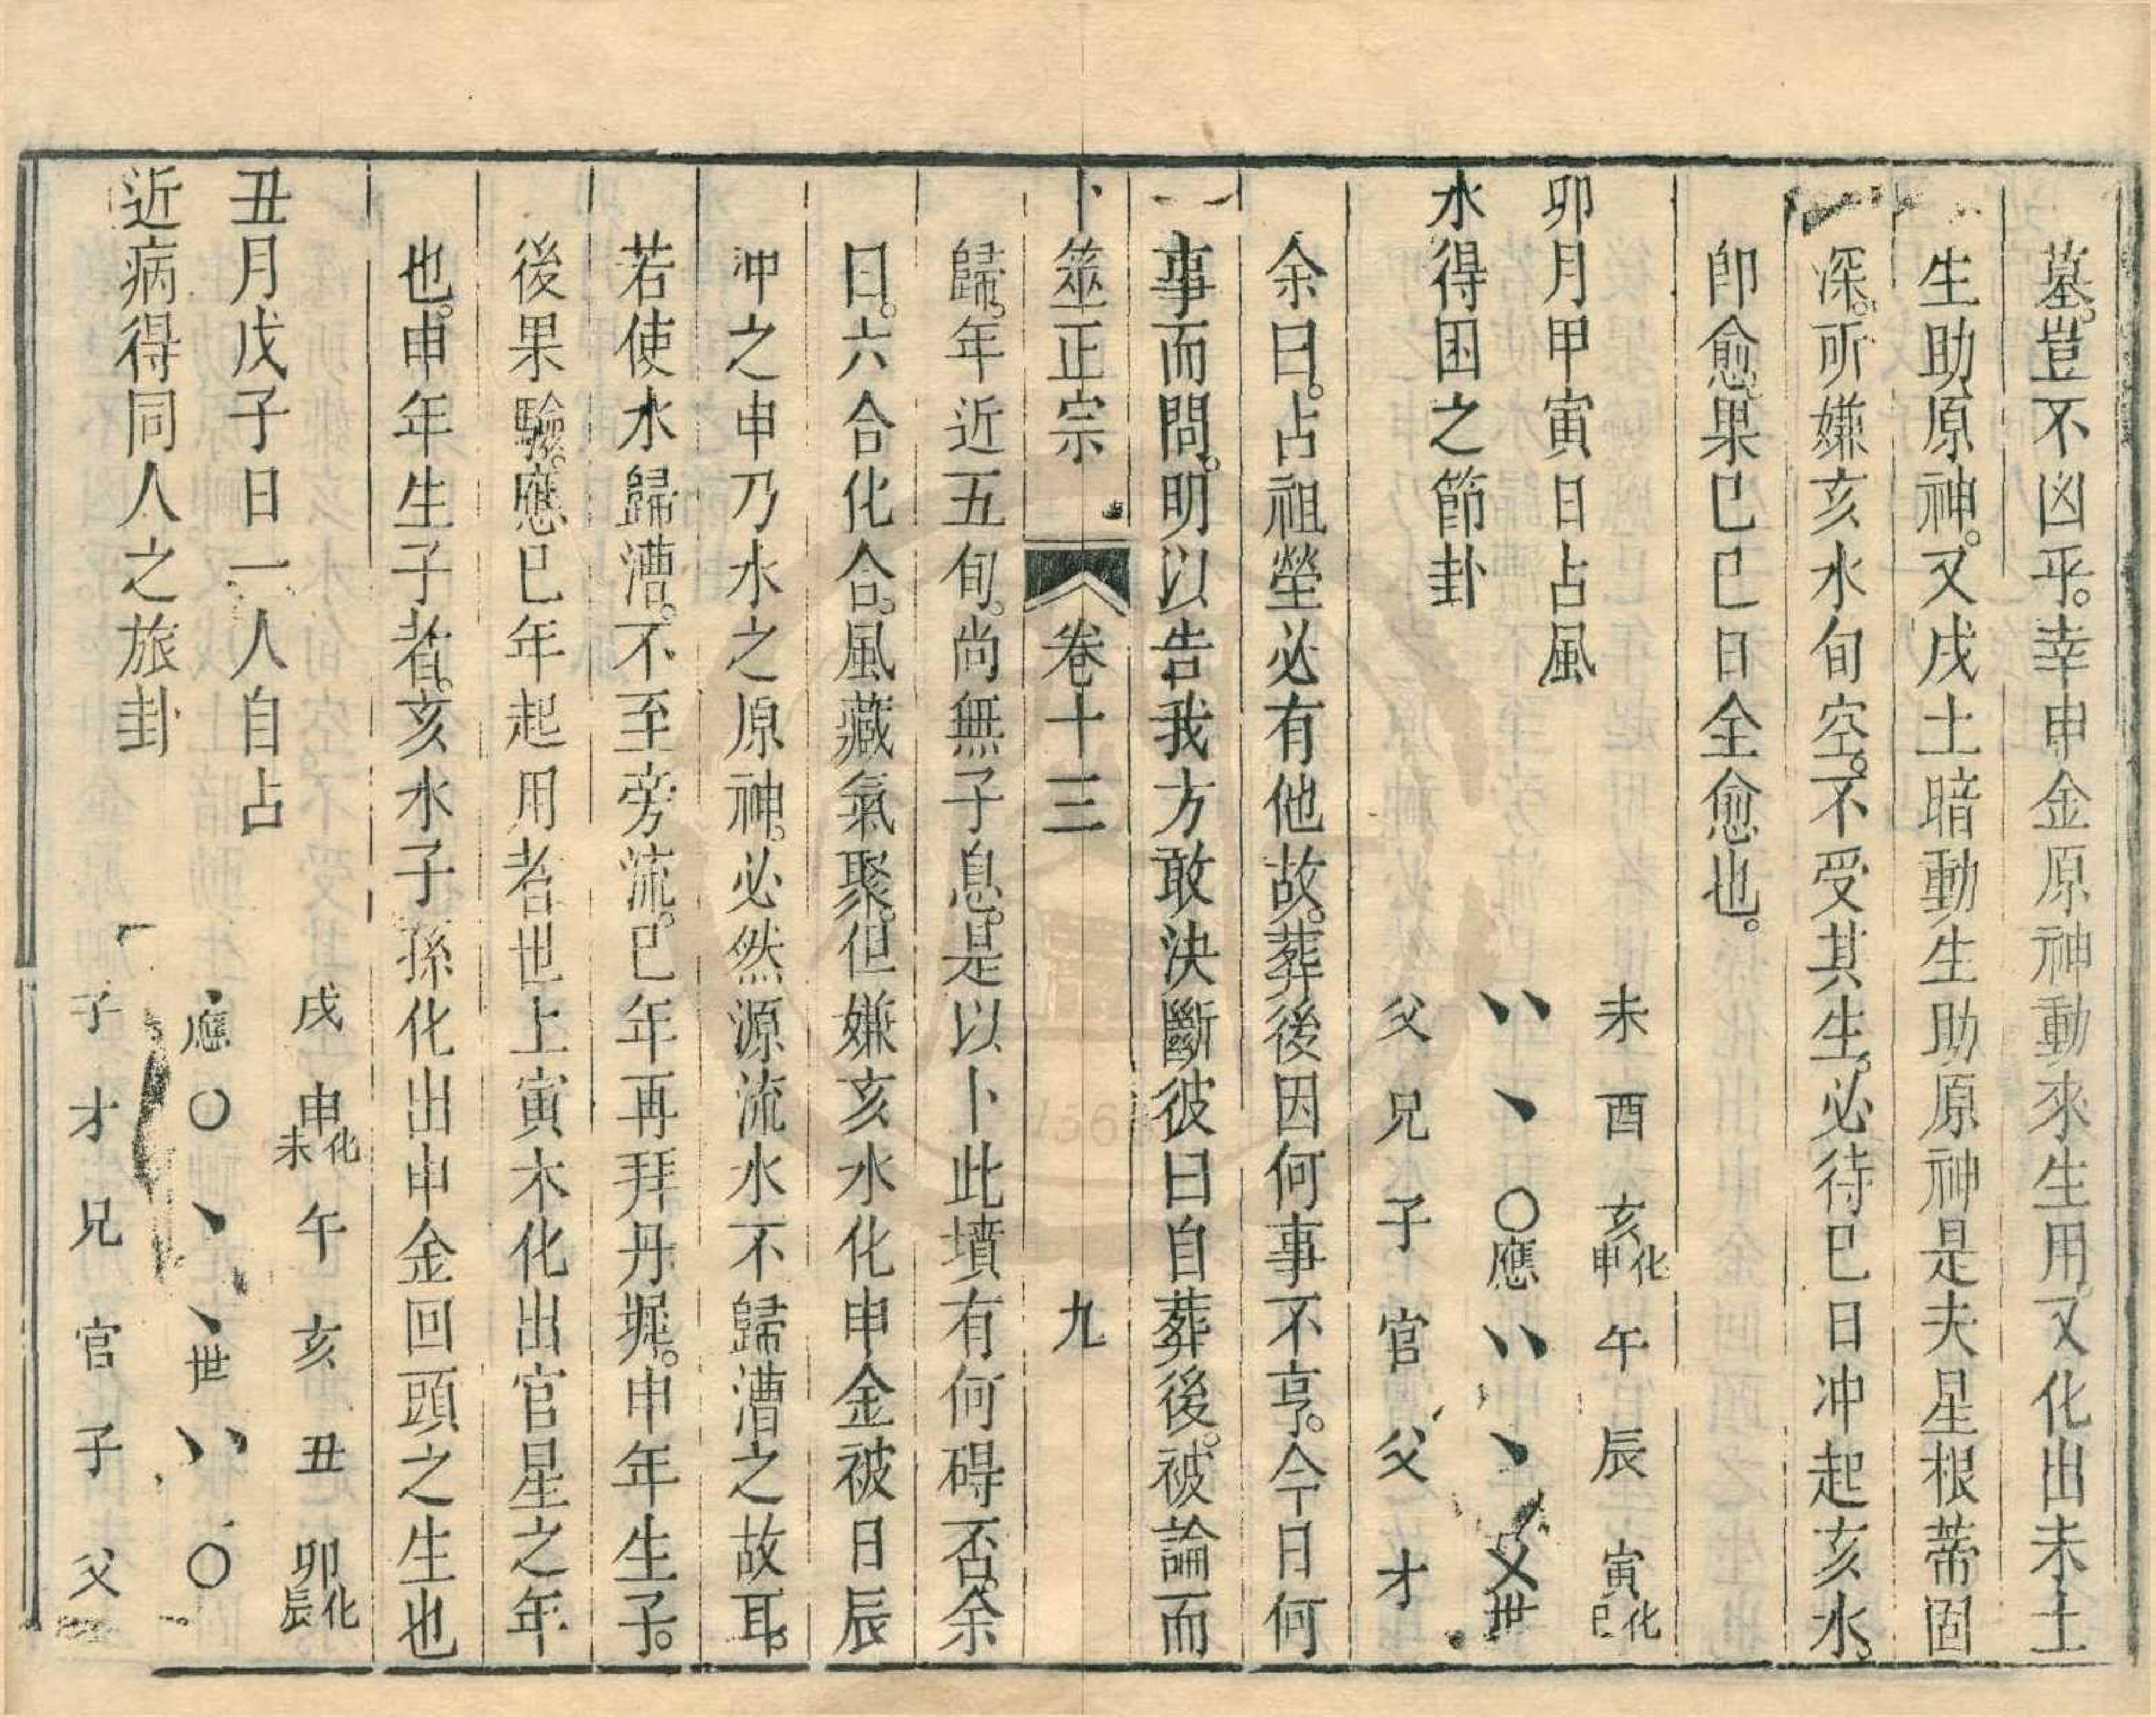 墓。豈不凶乎。幸申金原神動來生用。又化出未土
生助原神。又戌土暗動生助原神是夫星根蒂固
深。所嫌亥水旬空。不受其生。必待巳日冲起亥水。
卽愈。果巳巳日全愈也。
卯月甲寅日占風
水得困之節卦
未 酉 亥化申 午 辰 寅化巳
〃 丶 〇應 〃 丶 乂世
父 兄 子 官 父 才
余曰。占祖塋必有他故。葬後因何事不亨。今日何
事而問。明以告我方敢決斷彼曰自葬後。被論而
卜筮正宗 卷十三 九
歸。年近五旬。尚無子息。是以卜此墳有何碍否。余
曰。六合化合。風藏氣聚。但嫌亥水化申金被日辰
冲之申乃水之原神。必然源流水不歸漕之故耳。
若使水歸漕。不至旁流。巳年再拜丹墀。申年生子。
後果驗。應巳年起用者世上寅木化出官星之年
也。申年生子者。亥水子孫化出申金回頭之生也
丑月戊子日一人自占
近病得同人之旅卦
戌 申化未 午 亥 丑 卯化辰
丶應 〇 丶 丶世 〃 〇
子 才 兄 官 子 父